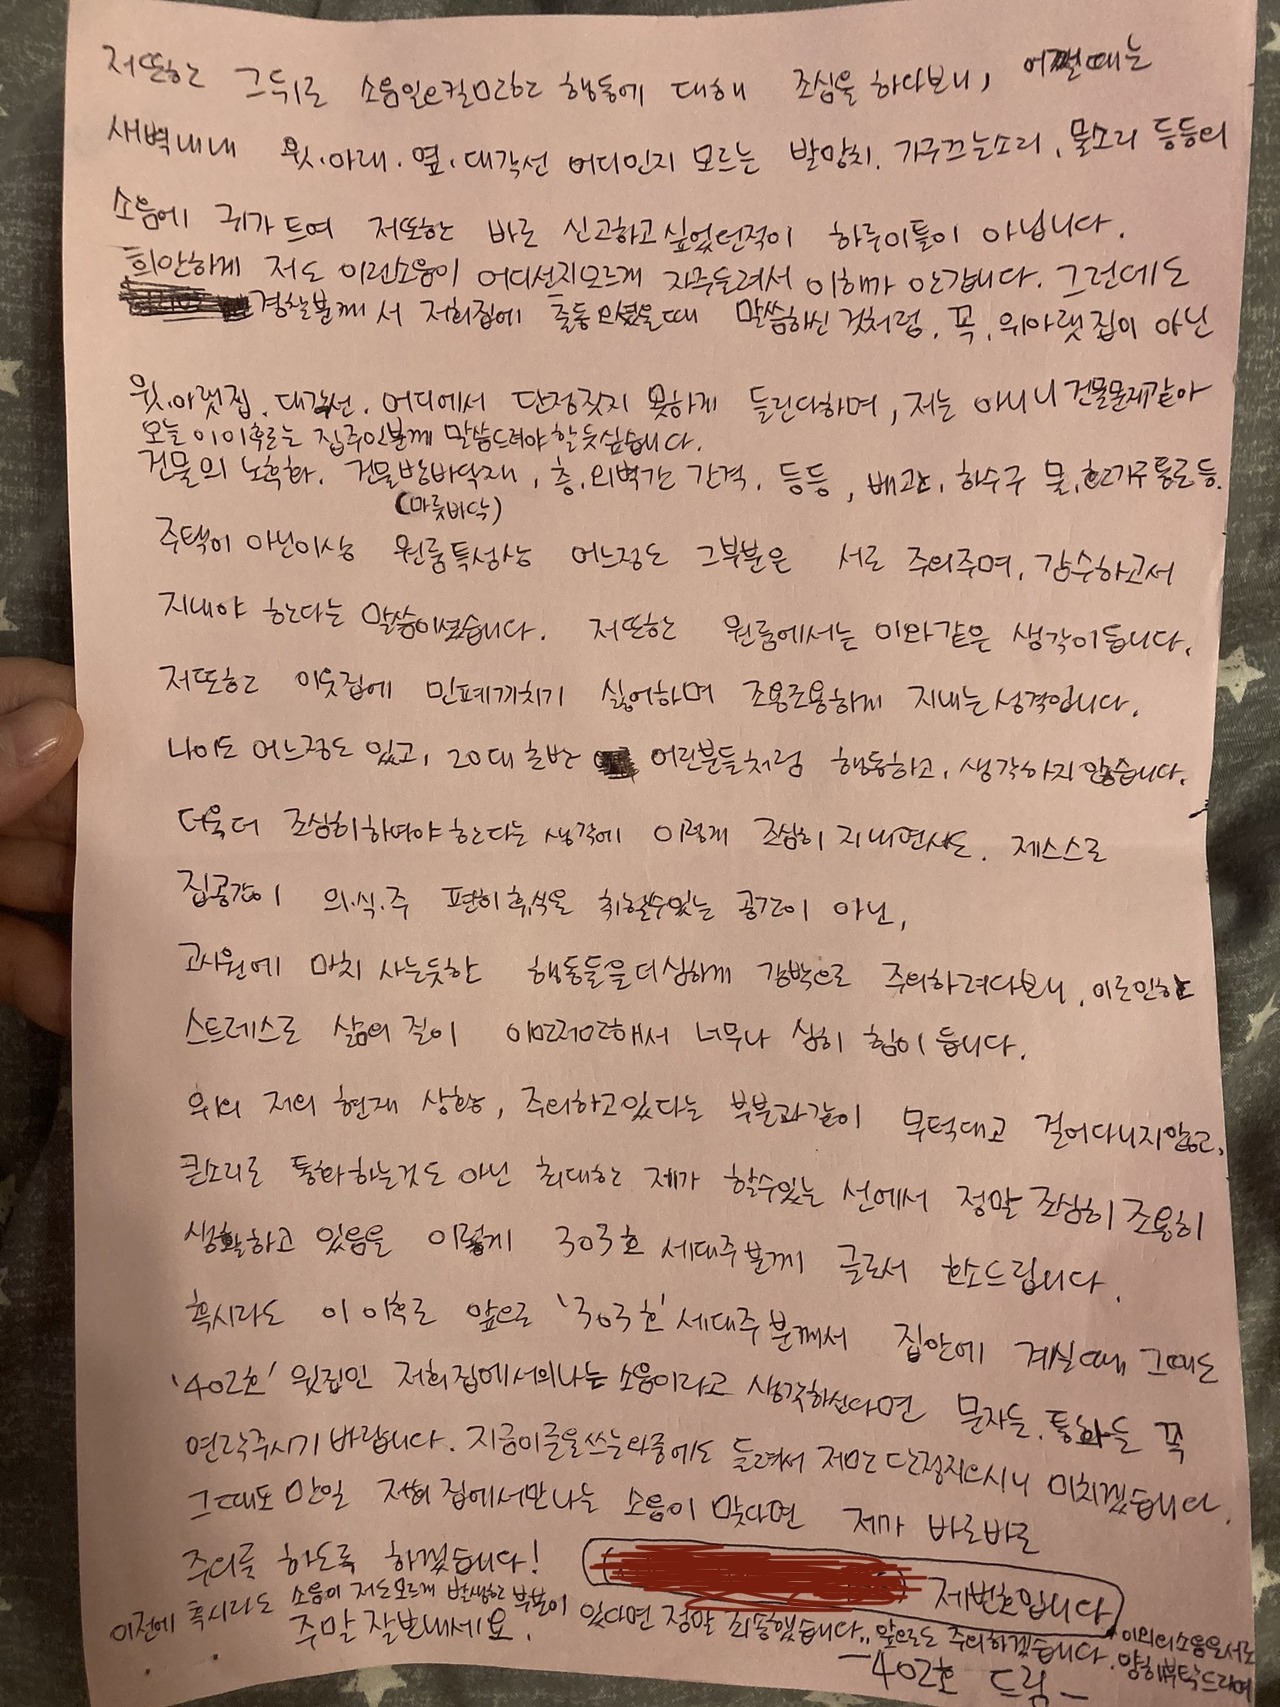 저또한 그뒤로 소음일으킬만한 행동에 대해 조심을 하다보니, 어쩔때는
새벽내내 윗.아래.옆.대각선 어디인지 모르는 발망치. 가구끄는소리, 물소리 등등의
소음에 귀가 트여 저또한 바로 신고하고싶었던적이 하루이틀이 아닙니다.
희안하게 저도 이런소음이 어디선지모르게 자주들려서 이해가 안갑니다. 그런데도
경찰분께서 저희집에 출동오셨을때 말씀하신것처럼, 꼭, 위아랫집이 아닌
윗.아랫집. 대각선. 어디에서 단정짓지 못하게 들린다하며, 저는 아니니 건물문제같아
오늘 이이후로는 집주인분께 말씀드려야할듯싶습니다.
건물의 노후화. 건물방바닥재, 층,외벽간 간격, 등등, 배관, 하수구 물,환기구통로등.
(마룻바닥)
주택이 아닌이상 원룸특성상 어느정도 그부분은 서로 주의주며, 감수하고서
지내야 한다는 말씀이셨습니다. 저또한 원룸에서는 이와같은 생각이듭니다.
저또한 이웃집에 민폐끼치기 싫어하며 조용조용하게 지내는성격입니다.
나이도 어느정도 있고, 20대 초반 어린분들처럼 행동하고, 생각하지않습니다.
더욱더 조심히하여야한다는 생각에 이렇게 조심히 지내면서도. 제스스로
집공간이 의.식.주 편히휴식을 취할수있는 공간이 아닌,
고시원에 마치 사는듯한 행동들을더심하게 강박으로 주의하려다보니, 이로인한
스트레스로 삶의 질이 이만저만해서 너무나 심히 힘이 듭니다.
위의 저의 현재 상황, 주의하고있다는 부분과같이 무턱대고 걸어다니지않고,
큰소리로 통화하는것도 아닌 최대한 제가 할수있는 선에서 정말 조심히 조용히
생활하고 있음을 이렇게 303호 세대주분께 글로서 호소드립니다.
혹시라도 이 이후로 앞으로 '303호' 세대주분께서 집안에 계실때, 그때도
'402호' 윗집인 저희집에서의나는 소음이라고 생각하신다면 문자든, 통화든 꼭
연락주시기 바랍니다. 지금이글을쓰는와중에도 들려서 저만 단정지으시니 미치겠습니다.
그때도 만일 저희 집에서만나는 소음이 맞다면 제가 바로바로
주의를 하도록 하겠습니다! 제번호입니다
이전에 혹시라도 소음이 저도모르게 발생한 부분이 있다면 정말 죄송했습니다.. 앞으로도 주의하겠습니다. 이외의소음은서로
양해부탁드리며
주말 잘보내세요.
-402호 드림-